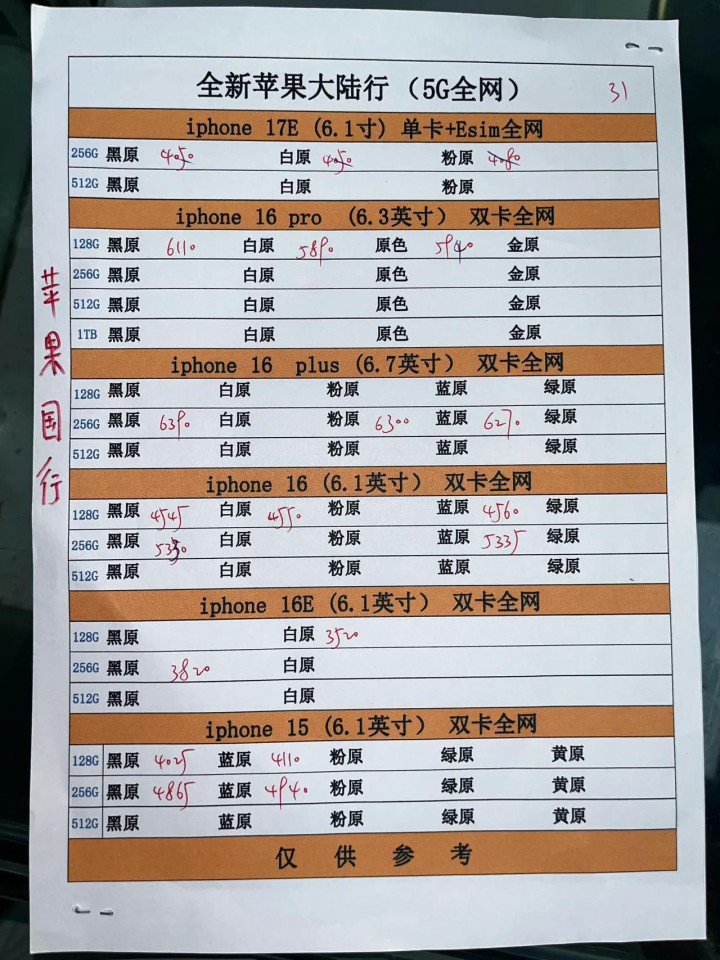 全新苹果大陆行（5G全网） 31
iphone 17E (6.1寸) 单卡+Esim全网
256G 黑原 4050 白原 4050 粉原 4080
512G 黑原 白原 粉原
iphone 16 pro (6.3英寸) 双卡全网
128G 黑原 6110 白原 5890 原色 5940 金原
256G 黑原 白原 原色 金原
512G 黑原 白原 原色 金原
1TB 黑原 白原 原色 金原
iphone 16 plus (6.7英寸) 双卡全网
128G 黑原 白原 粉原 蓝原 绿原
256G 黑原 6390 白原 粉原 6300 蓝原 6270 绿原
512G 黑原 白原 粉原 蓝原 绿原
iphone 16 (6.1英寸) 双卡全网
128G 黑原 4545 白原 4550 粉原 蓝原 4560 绿原
256G 黑原 5330 白原 粉原 蓝原 5335 绿原
512G 黑原 白原 粉原 蓝原 绿原
iphone 16E (6.1英寸) 双卡全网
128G 黑原 白原 3520
256G 黑原 3820 白原
512G 黑原 白原
iphone 15 (6.1英寸) 双卡全网
128G 黑原 4025 蓝原 4110 粉原 绿原 黄原
256G 黑原 4865 蓝原 4940 粉原 绿原 黄原
512G 黑原 蓝原 粉原 绿原 黄原
仅供参考
苹果国行